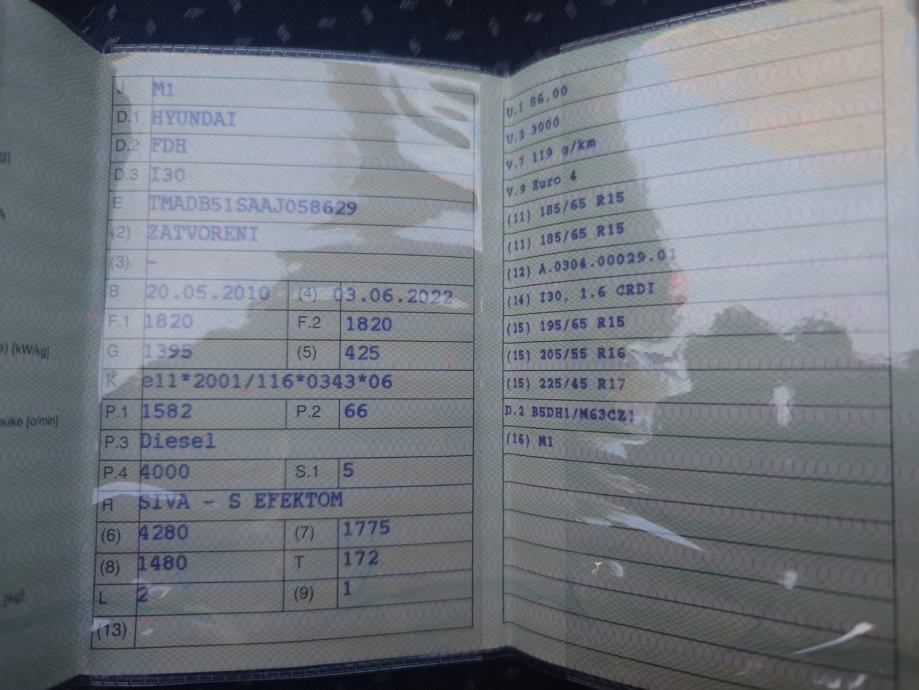 g]
A
e) [kW/kg]
euke [o/min]
[kg]
J M1
D.1 HYUNDAI
D.2 FDH
D.3 I30
E TMADB51SAAJ058629
(2) ZATVORENI
(3) –
B 20.05.2010 (4) 03.06.2022
F.1 1820 F.2 1820
G 1395 (5) 425
K e11*2001/116*0343*06
P.1 1582 P.2 66
P.3 Diesel
P.4 4000 S.1 5
R SIVA – S EFEKTOM
(6) 4280 (7) 1775
(8) 1480 T 172
L 2 (9) 1
(13)
U.1 86,00
U.2 3000
V.7 119 g/km
V.9 Euro 4
(11) 185/65 R15
(11) 185/65 R15
(12) A.0304.00029.01
(14) I30, 1.6 CRDI
(15) 195/65 R15
(15) 205/55 R16
(15) 225/45 R17
D.2 B5DH1/M63CZ1
(16) M1